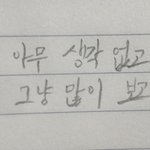 아무 생각 없고
그냥 많이 보고